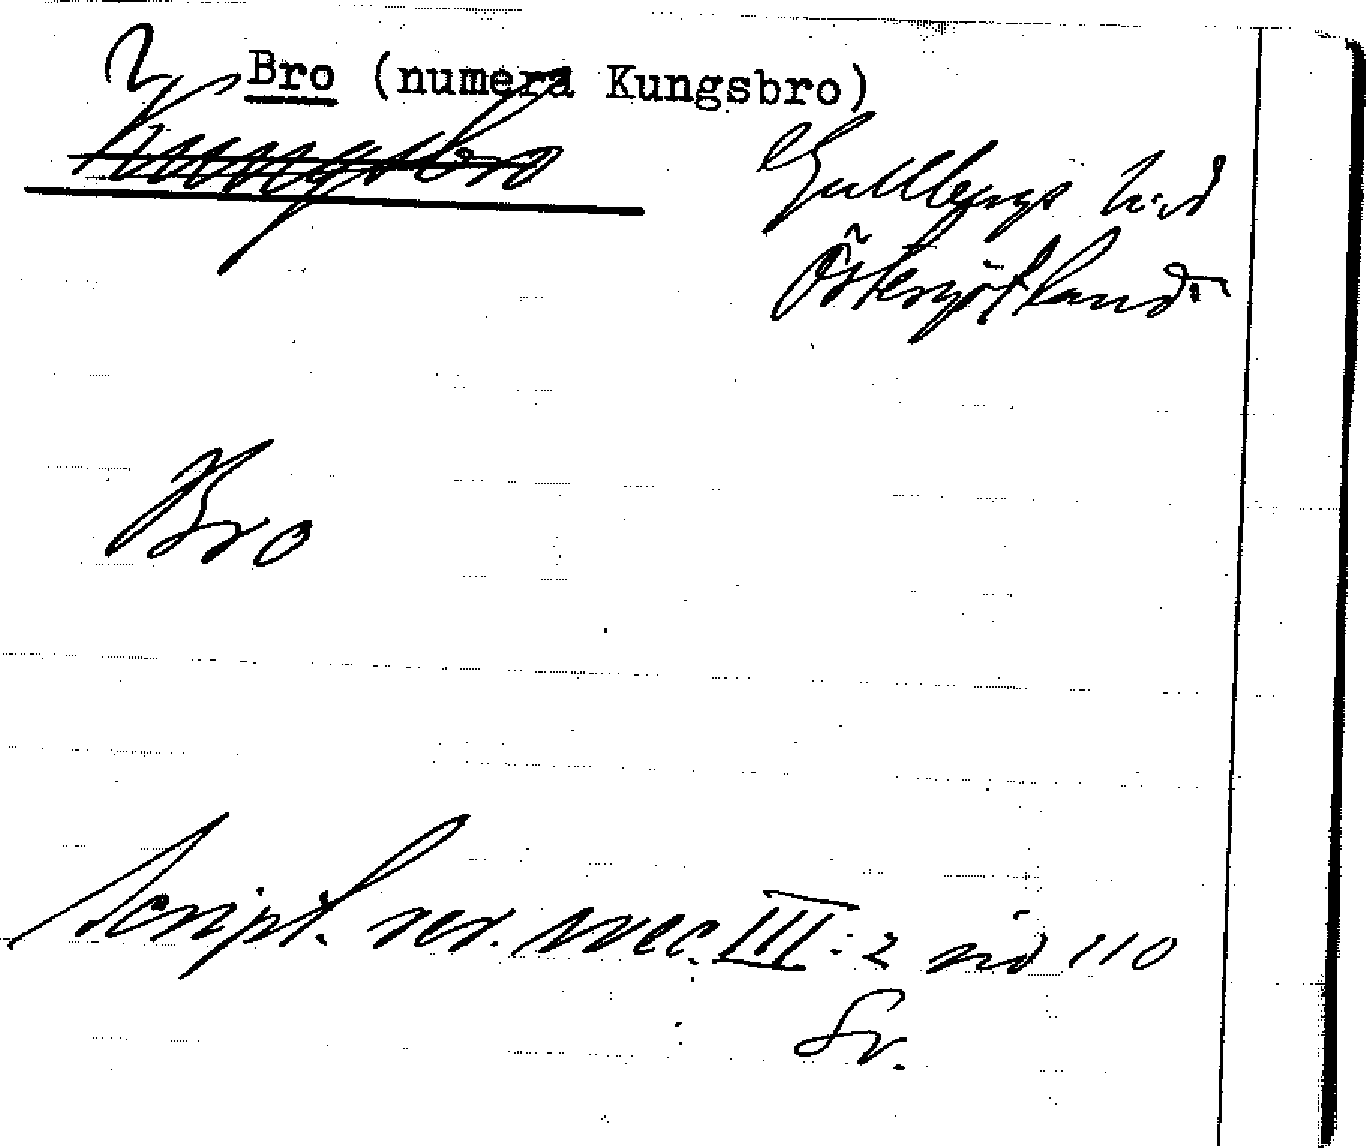 Bro (numera Kungsbro)
Kungsbro
Gullbergs hd
Östergötland
Bro
Script. rer. svec. III:2 sid 110